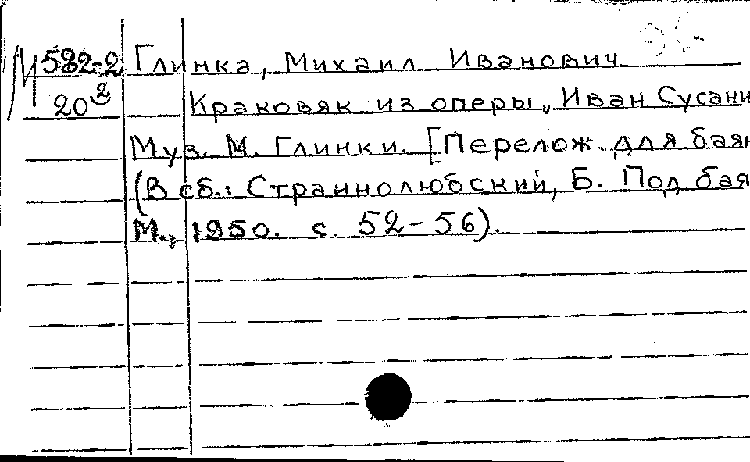 М 532-2 Глинка, Михаил Иванович
20² Краковяк из оперы „Иван Сусани
Муз. М. Глинки. [Перелож. для бая
(В сб.: Страннолюбский, Б. Под бая
М., 1950. с. 52-56).